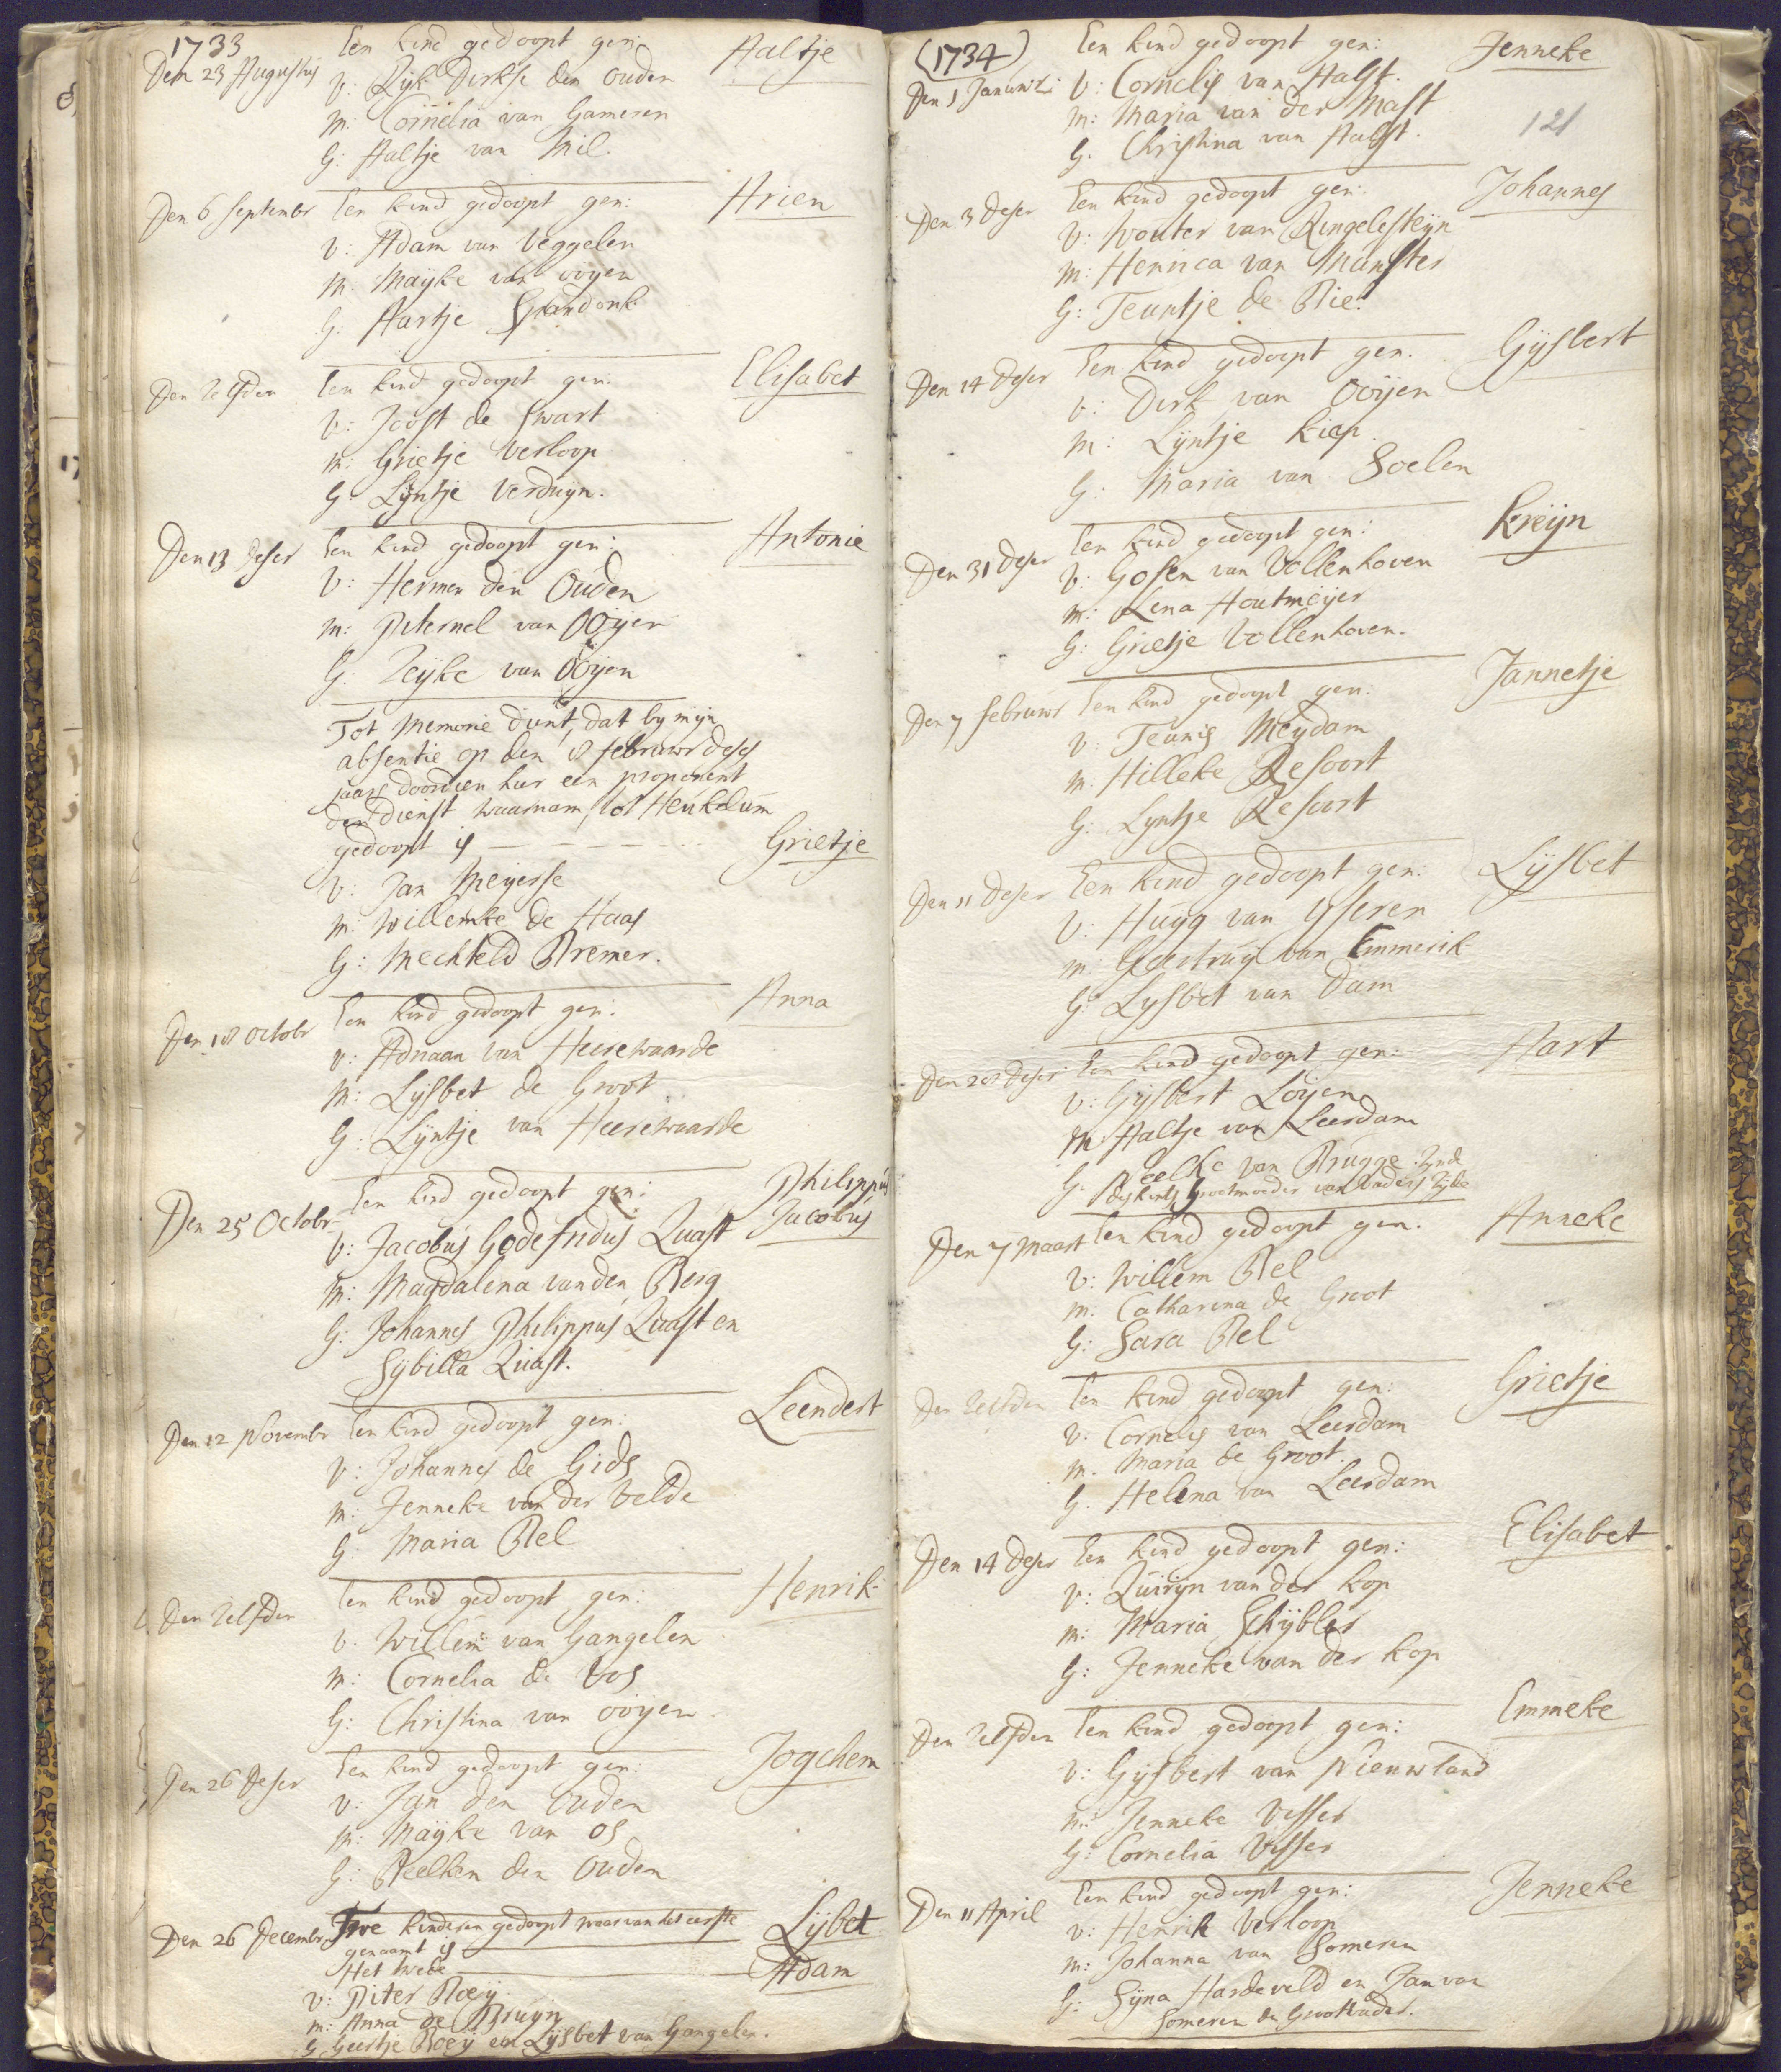 1733
Den 23 Augustus Een kind gedoopt gen: Aaltje
v: Ryk Dirkse den ouden
m: Cornelia van Gameren
G: Aaltje van Mil.
Den 6 Septembr Een kind gedoopt gen: Arien
v: Adam van Veggelen
m: Mayke van ooyen
G: Aartje Spandonk
Den Zelfden Een kind gedoopt gen: Elisabet
v: Joost de Swart
m: Grietje Verloop
G: Lyntje Verduyn.
Den 13 deser Een kind gedoopt gen: Antonie
v: Hermen den Ouden
m: Peternel van Ooÿen
G: Zeÿke van Ooÿen
Tot Memorie dient, dat by myn
absentie op den 8 februwr deses
jaars doordien hier een proponent
den dienst waarnam, tot Heukelum
gedoopt is - - - - - Grietje
v: Jan Meÿerse
m: Willemke de Haas
G: Mechteld Bremer.
Den 18 Octobr Een kind gedoopt gen: Anna
v: Adriaan van Heerewaarde
m: Lysbet de Groot
G: Lyntje van Heerewaarde
Den 25 Octobr Een kind gedoopt gen: Philippus
v: Jacobus Godefridus Quast Jacobus
m: Magdalena vanden Berg
G: Johannes Philippus Quast en
Sybilla Quast.
Den 22 Novembr Een kind gedoopt gen: Leendert
v: Johannes de Gids
m: Jenneke van der Velde
G: Maria Bel
Den Zelfden Een kind gedoopt gen: Henrik
v: Willem van Gangelen
m: Cornelia de Vos
G: Christina van ooyen
Den 26 deser Een kind gedoopt gen: Jogchem
v: Jan den Ouden
m: Mayke van Os
G: Beelken den Ouden
Den 26 Decembr Twe kinderen gedoopt waarvan het eerste Lysbet
genaamt is
Het twede Adam
v: Piter Roeÿ
m: Anna de Bruyn
G: Geertje Roeÿ en Lysbet van Gangelen.
(1734) Een kind gedoopt gen: Jenneke
Den 1 Januwr: v: Cornelis van Aalst.
m: Maria van der Mast
G. Christina van Aalst.
121
Den 3 deser Een kind gedoopt gen: Johannes
v: Wouter van Ringelesteyn
m: Henrica van Munster
G: Teuntje de Bie.
Den 14 deser Een kind gedoopt gen. Gysbert
v: Dirk van Ooÿen
m: Lyntje Kiep.
G: Maria van Soelen
Den 31 deser Een kind gedoopt gen: Kreyn
v: Gosen van Vollenhoven
m: Lena Houtmeyer
G: Grietje Vollenhoven.
Den 7 februwr Een kind gedoopt gen: Jannetje
v: Teunis Meydam
m. Hilleke Resoort
G: Lyntje Resoort
Den 11 deser Een kind gedoopt gen: Lysbet
v: Huyg van Yseren
m: Geertruy van Emmerik
G: Lysbet van Dam
Den 28 deser Een kind gedoopt gen: Aart
v: Gysbert Looyen
m: Aaltje van Leerdam
G. Beelke van Brugge. Zynde
des kints Grootmoeder van Vaders Zyde
Den 7 Maart Een kind gedoopt gen. Anneke
v: Willem Bel
m. Catharina de Groot
G: Sara Bel
Den Zelfden Een kind gedoopt gen: Grietje
v. Cornelis van Leerdam
m. Maria de Groot.
G. Helena van Leerdam
Den 14 deser Een kind gedoopt gen: Elisabet
v: Quiryn van der Kop
m: Maria Schybler
G: Jenneke van der Kop
Den Zelfden Een kind gedoopt gen: Emmeke
v: Gysbert van Nieuwland
m: Jenneke Visser
G: Cornelia Visser
Den 11 April Een kind gedoopt gen: Jenneke
v: Henrik Verloop
m: Johanna van Someren
G: Syna Hardeveld en Jan van
Someren de Grootvader.